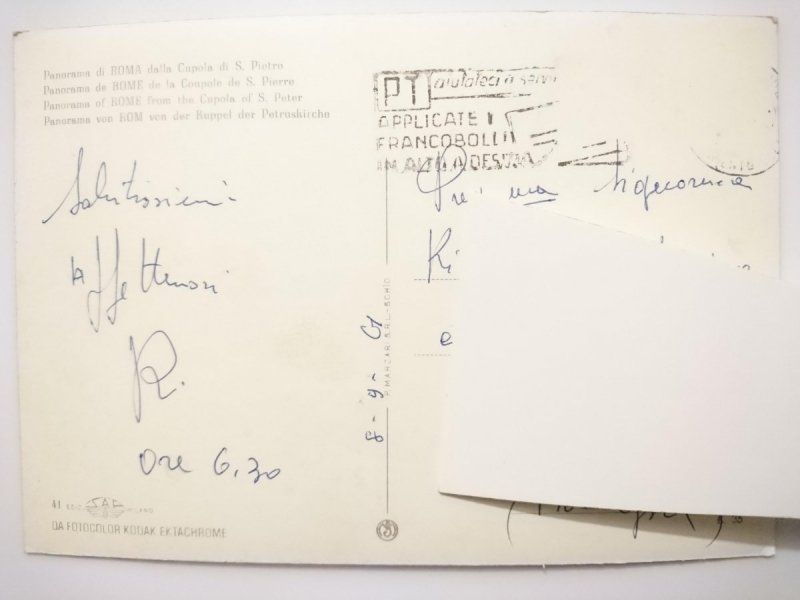 Panorama di ROMA dalla Cupola di S. Pietro
Panorama de ROME de la Coupole de S. Pierre
Panorama of ROME from the Cupola of S. Peter
Panorama von ROM von der Kuppel der Petruskirche
Salutissimi
Affettuosi
R.
Ore 6,30
41 EDIZ. SAR MILANO
DA FOTOCOLOR KODAK EKTACHROME
8-9-61
P. MARZARI S.R.L.-SCHIO
PT aiutateci a servi
APPLICATE I
FRANCOBOLLI
IN ALTO A DESTRA
Pre.ma Signorina
Ki